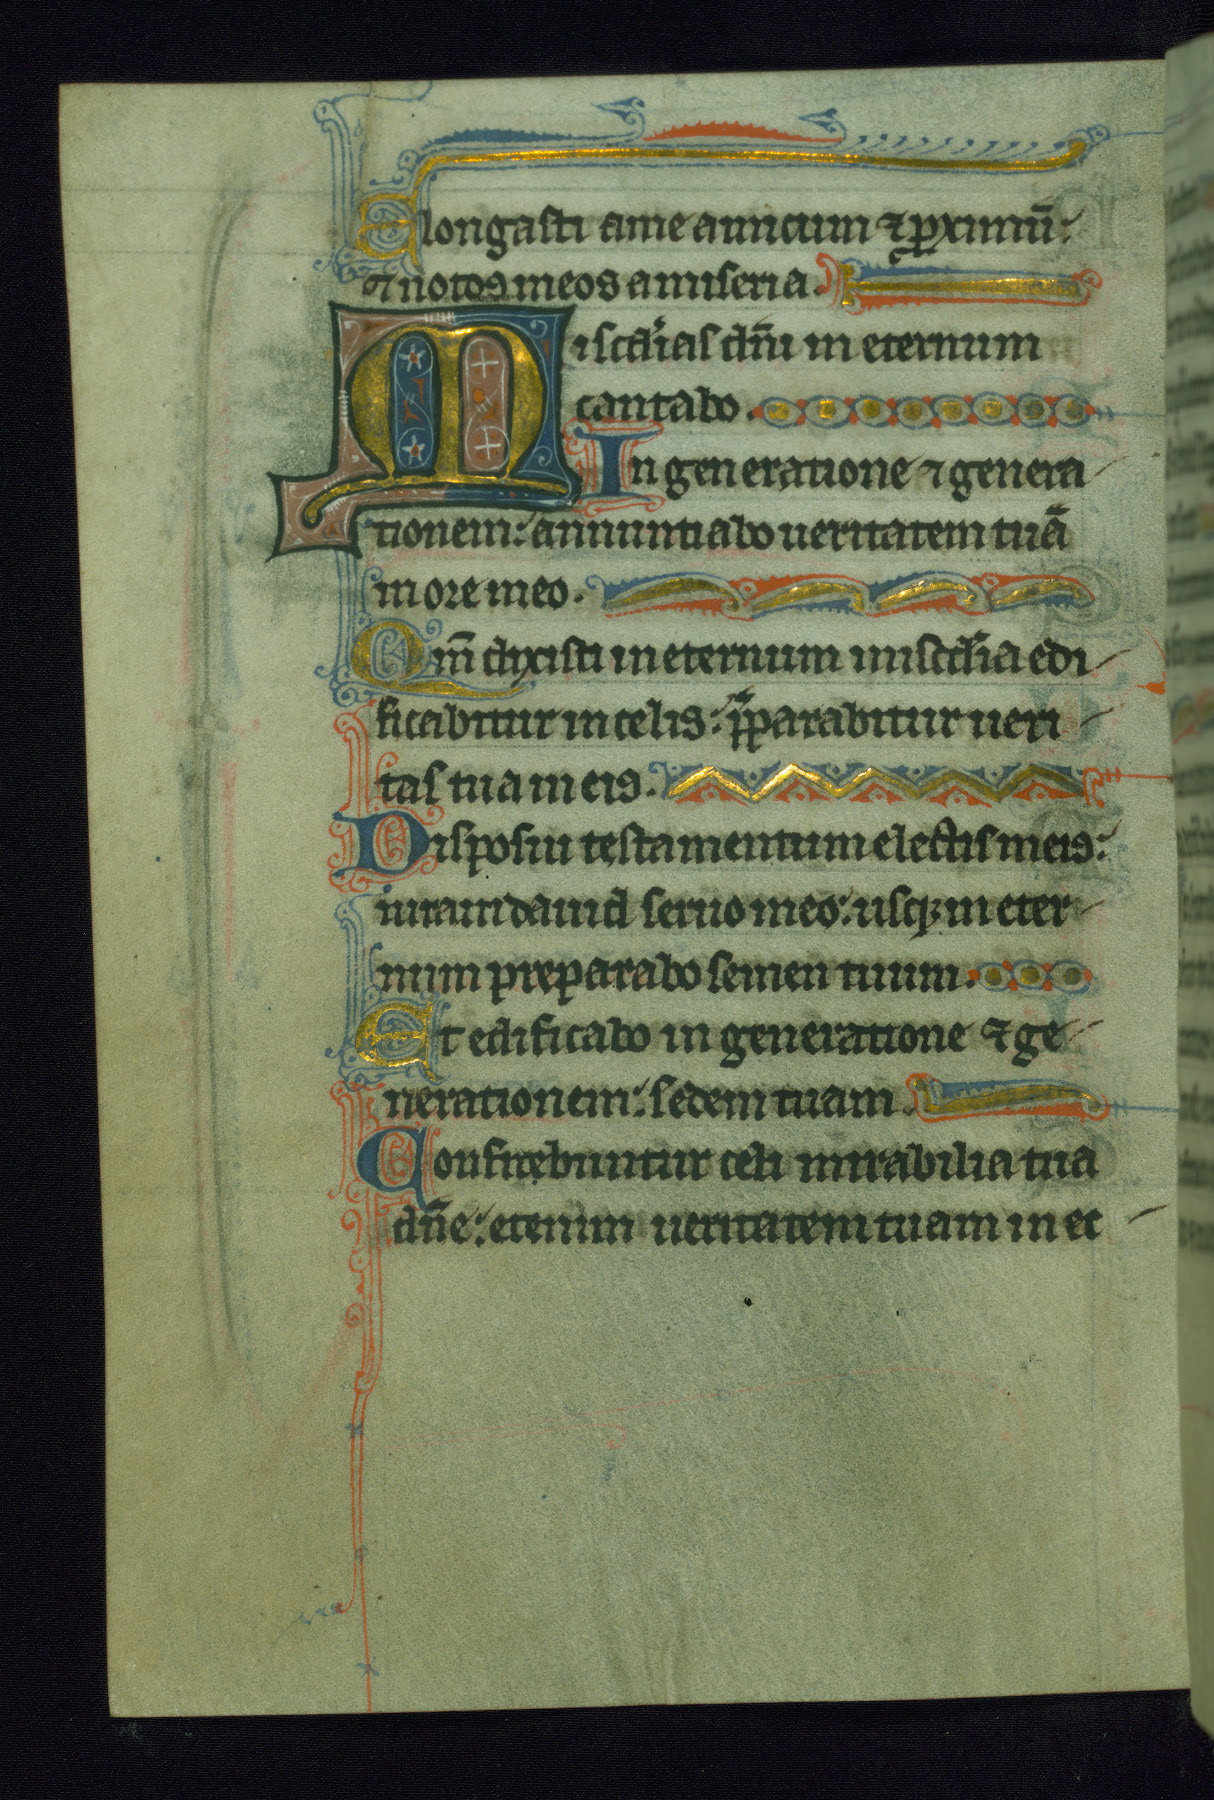 Elongasti a me amicum ⁊ ꝓximū:
et notos meos a miseria.
Miscd'ias dn̄i in eternum
cantabo.
In generatione ⁊ genera
tionem: annuntiabo ueritatem tuā
in ore meo.
Qm̄ dixisti in eternum miscd'ia edi
ficabitur in celis: p̄parabitur ueri
tas tua in eis.
Disposui testamentum electis meis:
iuraui dauid seruo meo: usqꝫ in eter
num preparabo semen tuum.
Et edificabo in generatione ⁊ ge
nerationem: sedem tuam.
Confitebuntur celi mirabilia tua
dn̄e: etenim ueritatem tuam in ec